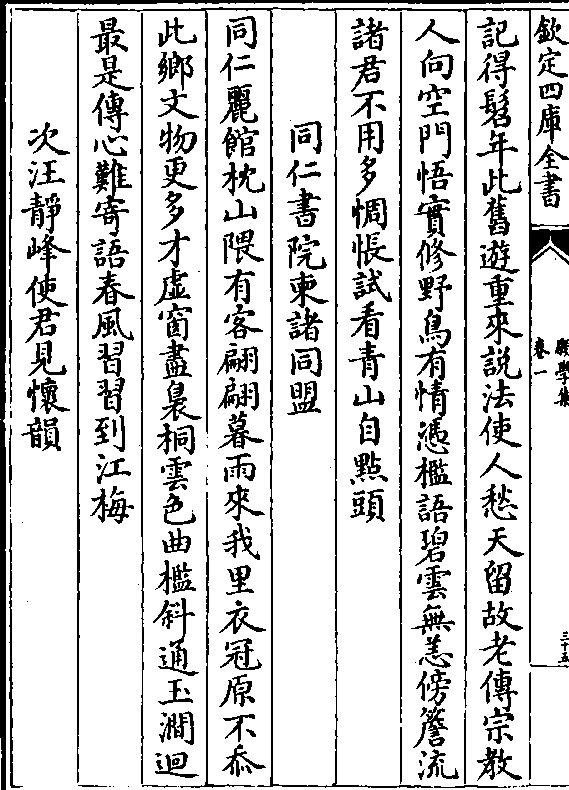 欽定四庫全書
願學集
卷一
三十五
記得髫年此舊遊重來說法使人愁天留故老傳宗教
人向空門悟實修野鳥有情憑檻語碧雲無恙傍簷流
諸君不用多惆悵試看青山自點頭
同仁書院柬諸同盟
同仁麗館枕山隈有客翩翩暮雨來我里衣冠原不忝
此鄉文物更多才虛窗盡裊桐雲色曲檻斜通玉澗迴
最是傳心難寄語春風習習到江梅
次汪靜峰使君見懷韻